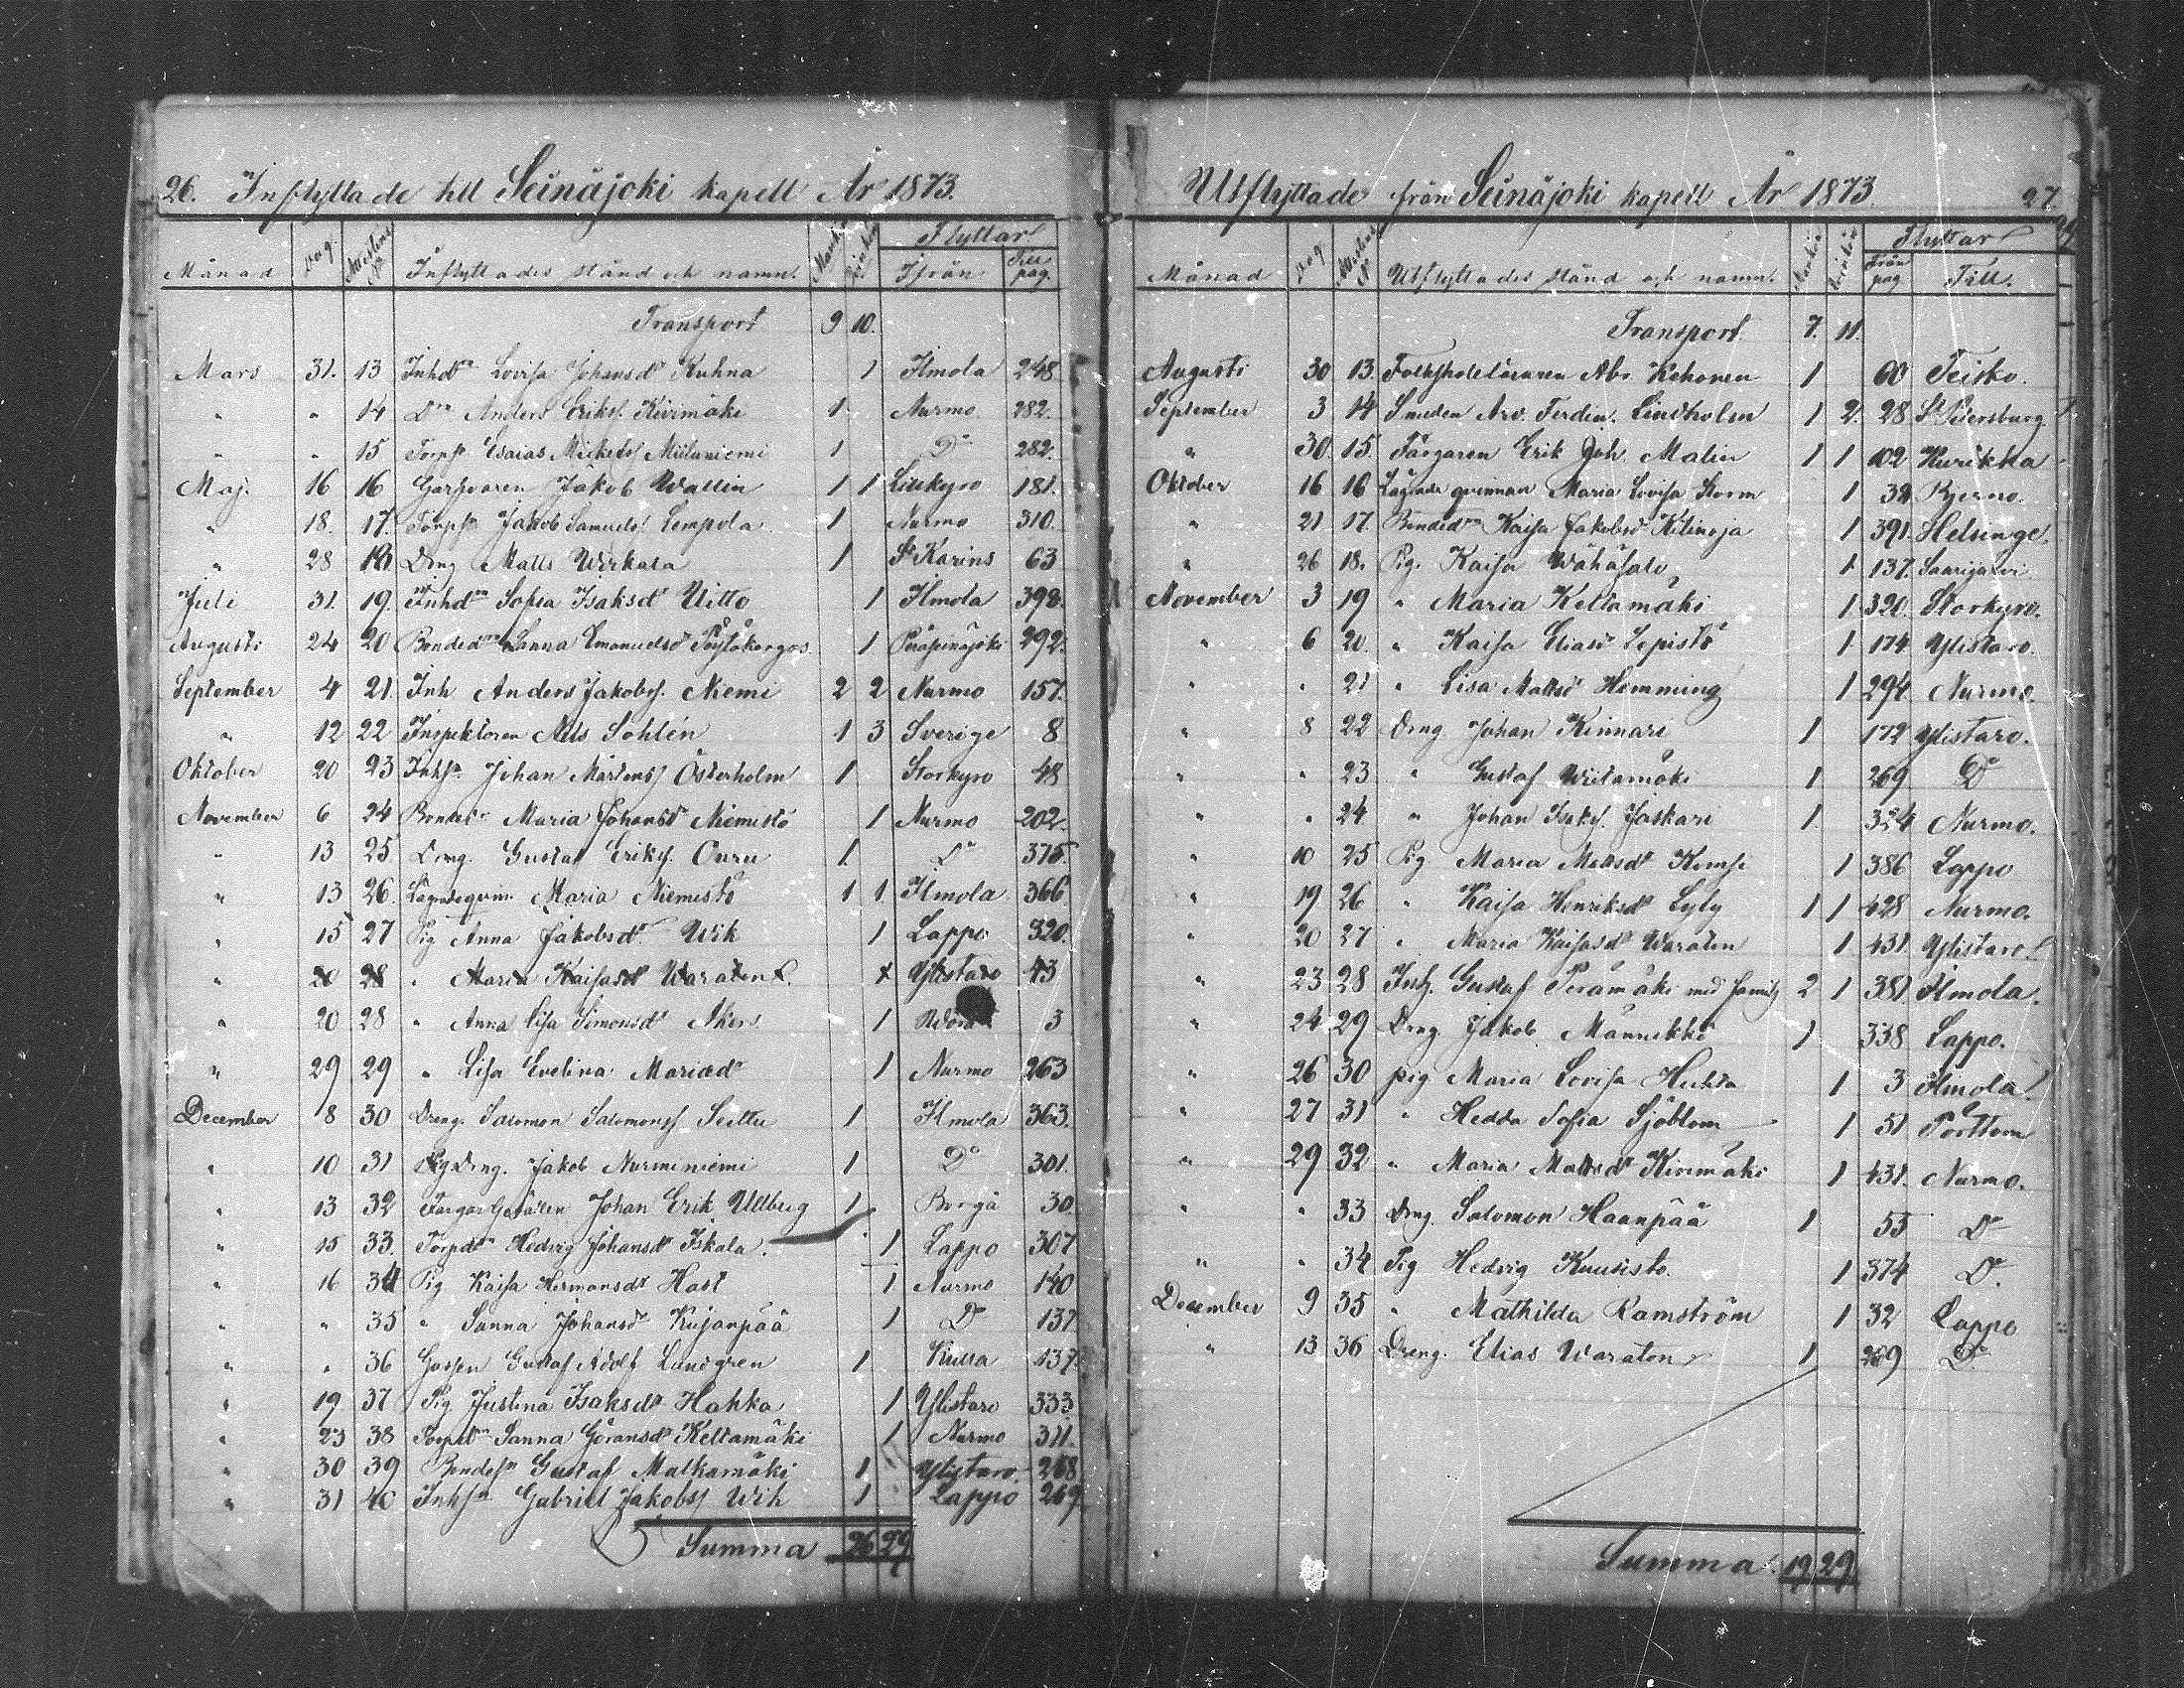 26. Inflyttade till Seinäjoki kapell År 1873.
Månad Dag Attestens No Inflyttades stånd och namn. Mankön Qvinkön Flyttar Ifrån Till pag.
Transport 9 10.
Mars 31. 13 Inhdr Lovisa Johansdr Kuhna 1 Ilmola 248
" " 14 Dn Anders Eriks. Kivimäki 1 Nurmo 282.
" " 15 Torps Esaias Mickels Miiluniemi 1 Do 282.
Maj. 16 16 Garfvaren Jakob Wallin 1 1 Lillkyro 181.
" 18. 17. Torps Jakob Samuels. Lempola 1 Nurmo 310.
" 28 18 Dng Matts Wirkala 1 St Karins 63
Juli 31. 19. Inhdr Sofia Isaksdr Uitto 1 Ilmola 398.
Augusti 24 20 Bondedr Sanna Emanuelsdr 1 Peräseinäjoki 292.
September 4 21. Inh Anders Jakobs. Niemi 2 2 Nurmo 157.
" 12 22 Inspektoren Nils Sohlén 1 3 Sverige 8
Oktober 20 23 Inhs. Johan Mårtens Österholm 1 Storkyro 48
November 6 24 Bondedr Maria Johansdr Niemistö 1 Nurmo 202.
" 13 25 Dng. Gustaf Eriks. Ouru 1 Do 375.
" 13 26. Lägradeqvin. Maria Niemistö 1 1. Ilmola 366
" 15 27 Pig Anna Jakobsdr Wik 1 Lappo 320.
" 20 28 " Maria Kaisasdr Waraten 1 Ylistaro 43
" 20 28 " Anna Lisa Simonsdr Åkers 1 Wörå 3
" 29 29 " Lisa Evelina Mariædr 1 Nurmo 263
December 8 30 Dreng. Salomon Salomons Seittu 1 Ilmola 363.
" 10 31 Dng. Jakob Nurminiemi 1 Do 301.
" 13 32 Färgar Gesällen Johan Erik Ullberg 1 Borgå 30.
" 15 33. Torpdr Hedvig Johansdr Iskala. 1 Lappo 307
" 16 34 Pig Kaisa Hermansdr Hast 1 Nurmo 140
" " 35 " Sanna Johansdr Kujanpää 1 Do 137
" " 36 Gossen Gustaf Adolf Lundgren 1 Kiulla 137.
" 19 37 Pig Justina Isaksdr Hahka 1 Ylistaro 333
" 23 38 Torpdr Sanna Göransdr Keltamäki 1 Nurmo 311.
" 30 39 Bondes Gustaf Malkamäki 1 Ylistaro 268
" 31 40 Inhs Gabriel Jakobs Wik 1 Lappo 269
Summa 26 29
Utflyttade från Seinäjoki kapell År 1873. 27
Månad Dag Attestens No Utflyttades stånd och namn. Mankön Qvinkön Flyttar Från pag Till.
Transport. 7. 11.
Augusti 30 13. Folkskoleläraren Abr. Kekonen 1 60 Teisko.
September 3 14 Smeden Arv. Ferdin. Lindholm 1 2. 28 St Petersburg
" 30. 15. Färgaren Erik Joh. Malin 1 1 102 Kurikka
Oktober 16 16 Lägrade qvinnan Maria Lovisa Storm 1 32 Bjerno.
" 21 17. Bondedr Kaisa Jakobsdr Kilinoja 1 391. Helsinge.
" 26 18. Pig. Kaisa Wähäsalo 1 137. Saarijärvi
November 3 19 " Maria Keltamäki 1 320. Storkyro.
" 6 20. " Kaisa Eliasdr Lepistö 1 174 Ylistaro.
" " 21 " Lisa Mattsdr Hemming 1 294. Nurmo.
" 8 22 Dng Johan Kinnari 1 172 Ylistaro.
" " 23 " Gustaf Wiitamäki 1 269 Do
" " 24 " Johan Isaks. Jaskari 1. 324 Nurmo.
" 10 25 Pig Maria Mattsdr Kimsi 1 386 Lappo
" 19 26 " Kaisa Henriksdr Lyly 1 1 428 Nurmo.
" 20 27 " Maria Kaisasdr Waraten 1. 431. Ylistaro.
" 23 28 Inh. Gustaf Perämäki med familj 2 1 381 Ilmola.
" 24 29 Dng. Jakob Männikkö 1 338 Lappo.
" 26 30 pig Maria Lovisa Huhta 1 3 Ilmola.
" 27 31 " Hedda Sofia Sjöblom 1 51 Pörttom
" 29 32 " Maria Mattsdr Kivimäki 1 431. Nurmo.
" " 33 Dng. Salomon Haanpää 1 53 Do
" " 34 Pig Hedvig Kuusisto. 1 374 Do.
December 9 35 " Mathilda Ramström 1 32 Lappo
" 13 36 Dreng. Elias Waraton 1 269 Do
Summa. 19 29.